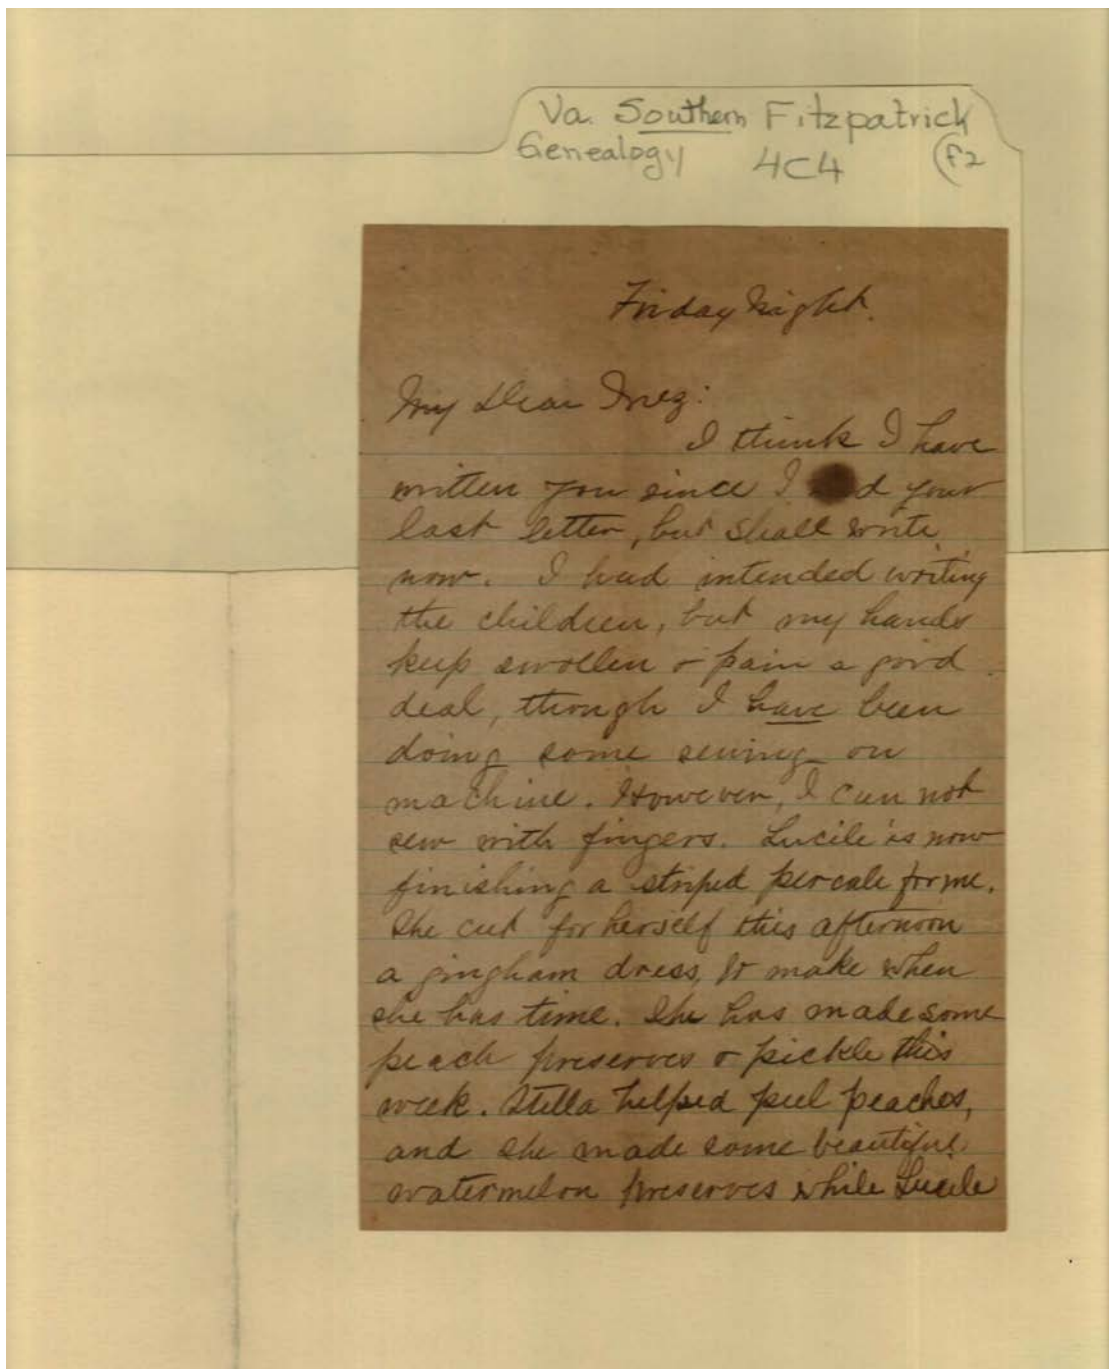 Va. Southern Fitzpatrick
Genealogy 4C4 (F2
Friday Night.
My Dear Inez:
I think I have
written you since I d your
last letter, but shall write
now. I had intended writing
the children, but my hands
keep swollen & pain a good
deal, though I have been
doing some sewing on
machine. However, I can not
sew with fingers. Lucile is now
finishing a striped percale for me.
She cut for herself this afternoon
a gingham dress, to make when
she has time. She has made some
peach preserves & pickle this
week. Stella helped peel peaches,
and she made some beautiful
watermelon preserves while Lucile